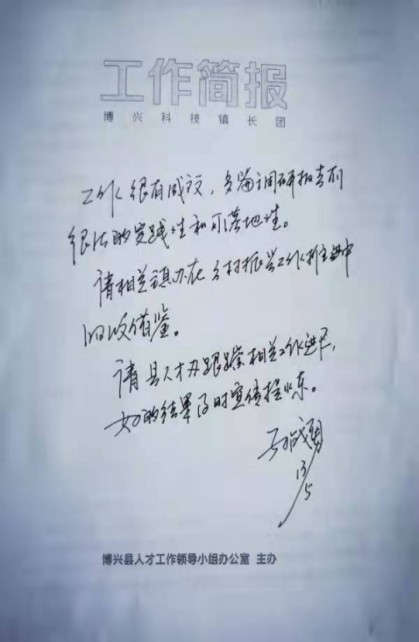 工作简报
博兴科技镇长团
工作很有成效，多篇调研报告有
很强的实践性和可落地性。
请相关镇办在乡村振兴工作推进中
吸收借鉴。
请县人才办跟踪相关工作进展，
好的结果及时宣传推
13/5
博兴县人才工作领导小组办公室 主办